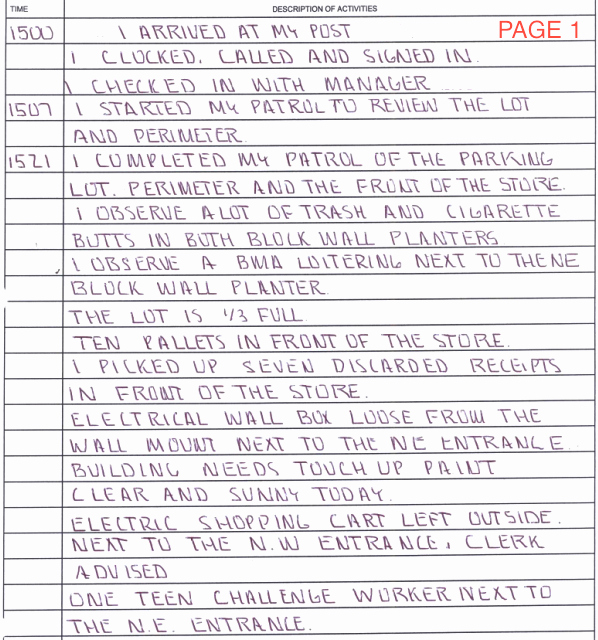 TIME DESCRIPTION OF ACTIVITIES
1500 I ARRIVED AT MY POST PAGE 1
I CLOCKED, CALLED AND SIGNED IN.
I CHECKED IN WITH MANAGER
1507 I STARTED MY PATROL TO REVIEW THE LOT
AND PERIMETER.
1521 I COMPLETED MY PATROL OF THE PARKING
LOT. PERIMETER AND THE FRONT OF THE STORE.
I OBSERVE A LOT OF TRASH AND CIGARETTE
BUTTS IN BOTH BLOCK WALL PLANTERS
I OBSERVE A BMA LOITERING NEXT TO THE NE
BLOCK WALL PLANTER.
THE LOT IS 1/3 FULL
TEN PALLETS IN FRONT OF THE STORE.
I PICKED UP SEVEN DISCARDED RECEIPTS
IN FRONT OF THE STORE.
ELECTRICAL WALL BOX LOOSE FROM THE
WALL MOUNT NEXT TO THE NE ENTRANCE.
BUILDING NEEDS TOUCH UP PAINT
CLEAR AND SUNNY TODAY.
ELECTRIC SHOPPING CART LEFT OUTSIDE.
NEXT TO THE N.W ENTRANCE, CLERK
ADVISED
ONE TEEN CHALLENGE WORKER NEXT TO
THE N.E. ENTRANCE.